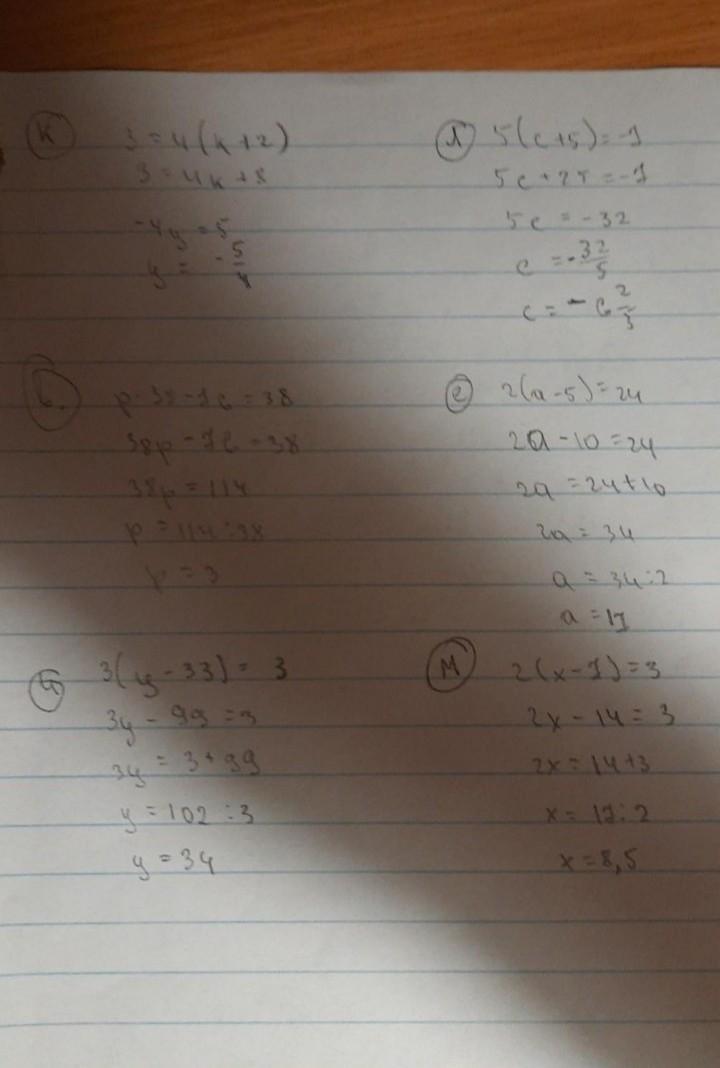 К 3=4(k+2)
3=4k+8
-4y=5
y= -5/4
Л 5(c+5)=-7
5c+25=-7
5c=-32
c=-32/5
c=-6 2/5
p·38-76=38
38p-76=38
38p=114
p=114:38
p=3
е 2(a-5)=24
2a-10=24
2a=24+10
2a=34
a=34:2
a=17
3(y-33)=3
3y-99=3
3y=3+99
y=102:3
y=34
М 2(x-7)=3
2x-14=3
2x=14+3
x=17:2
x=8,5